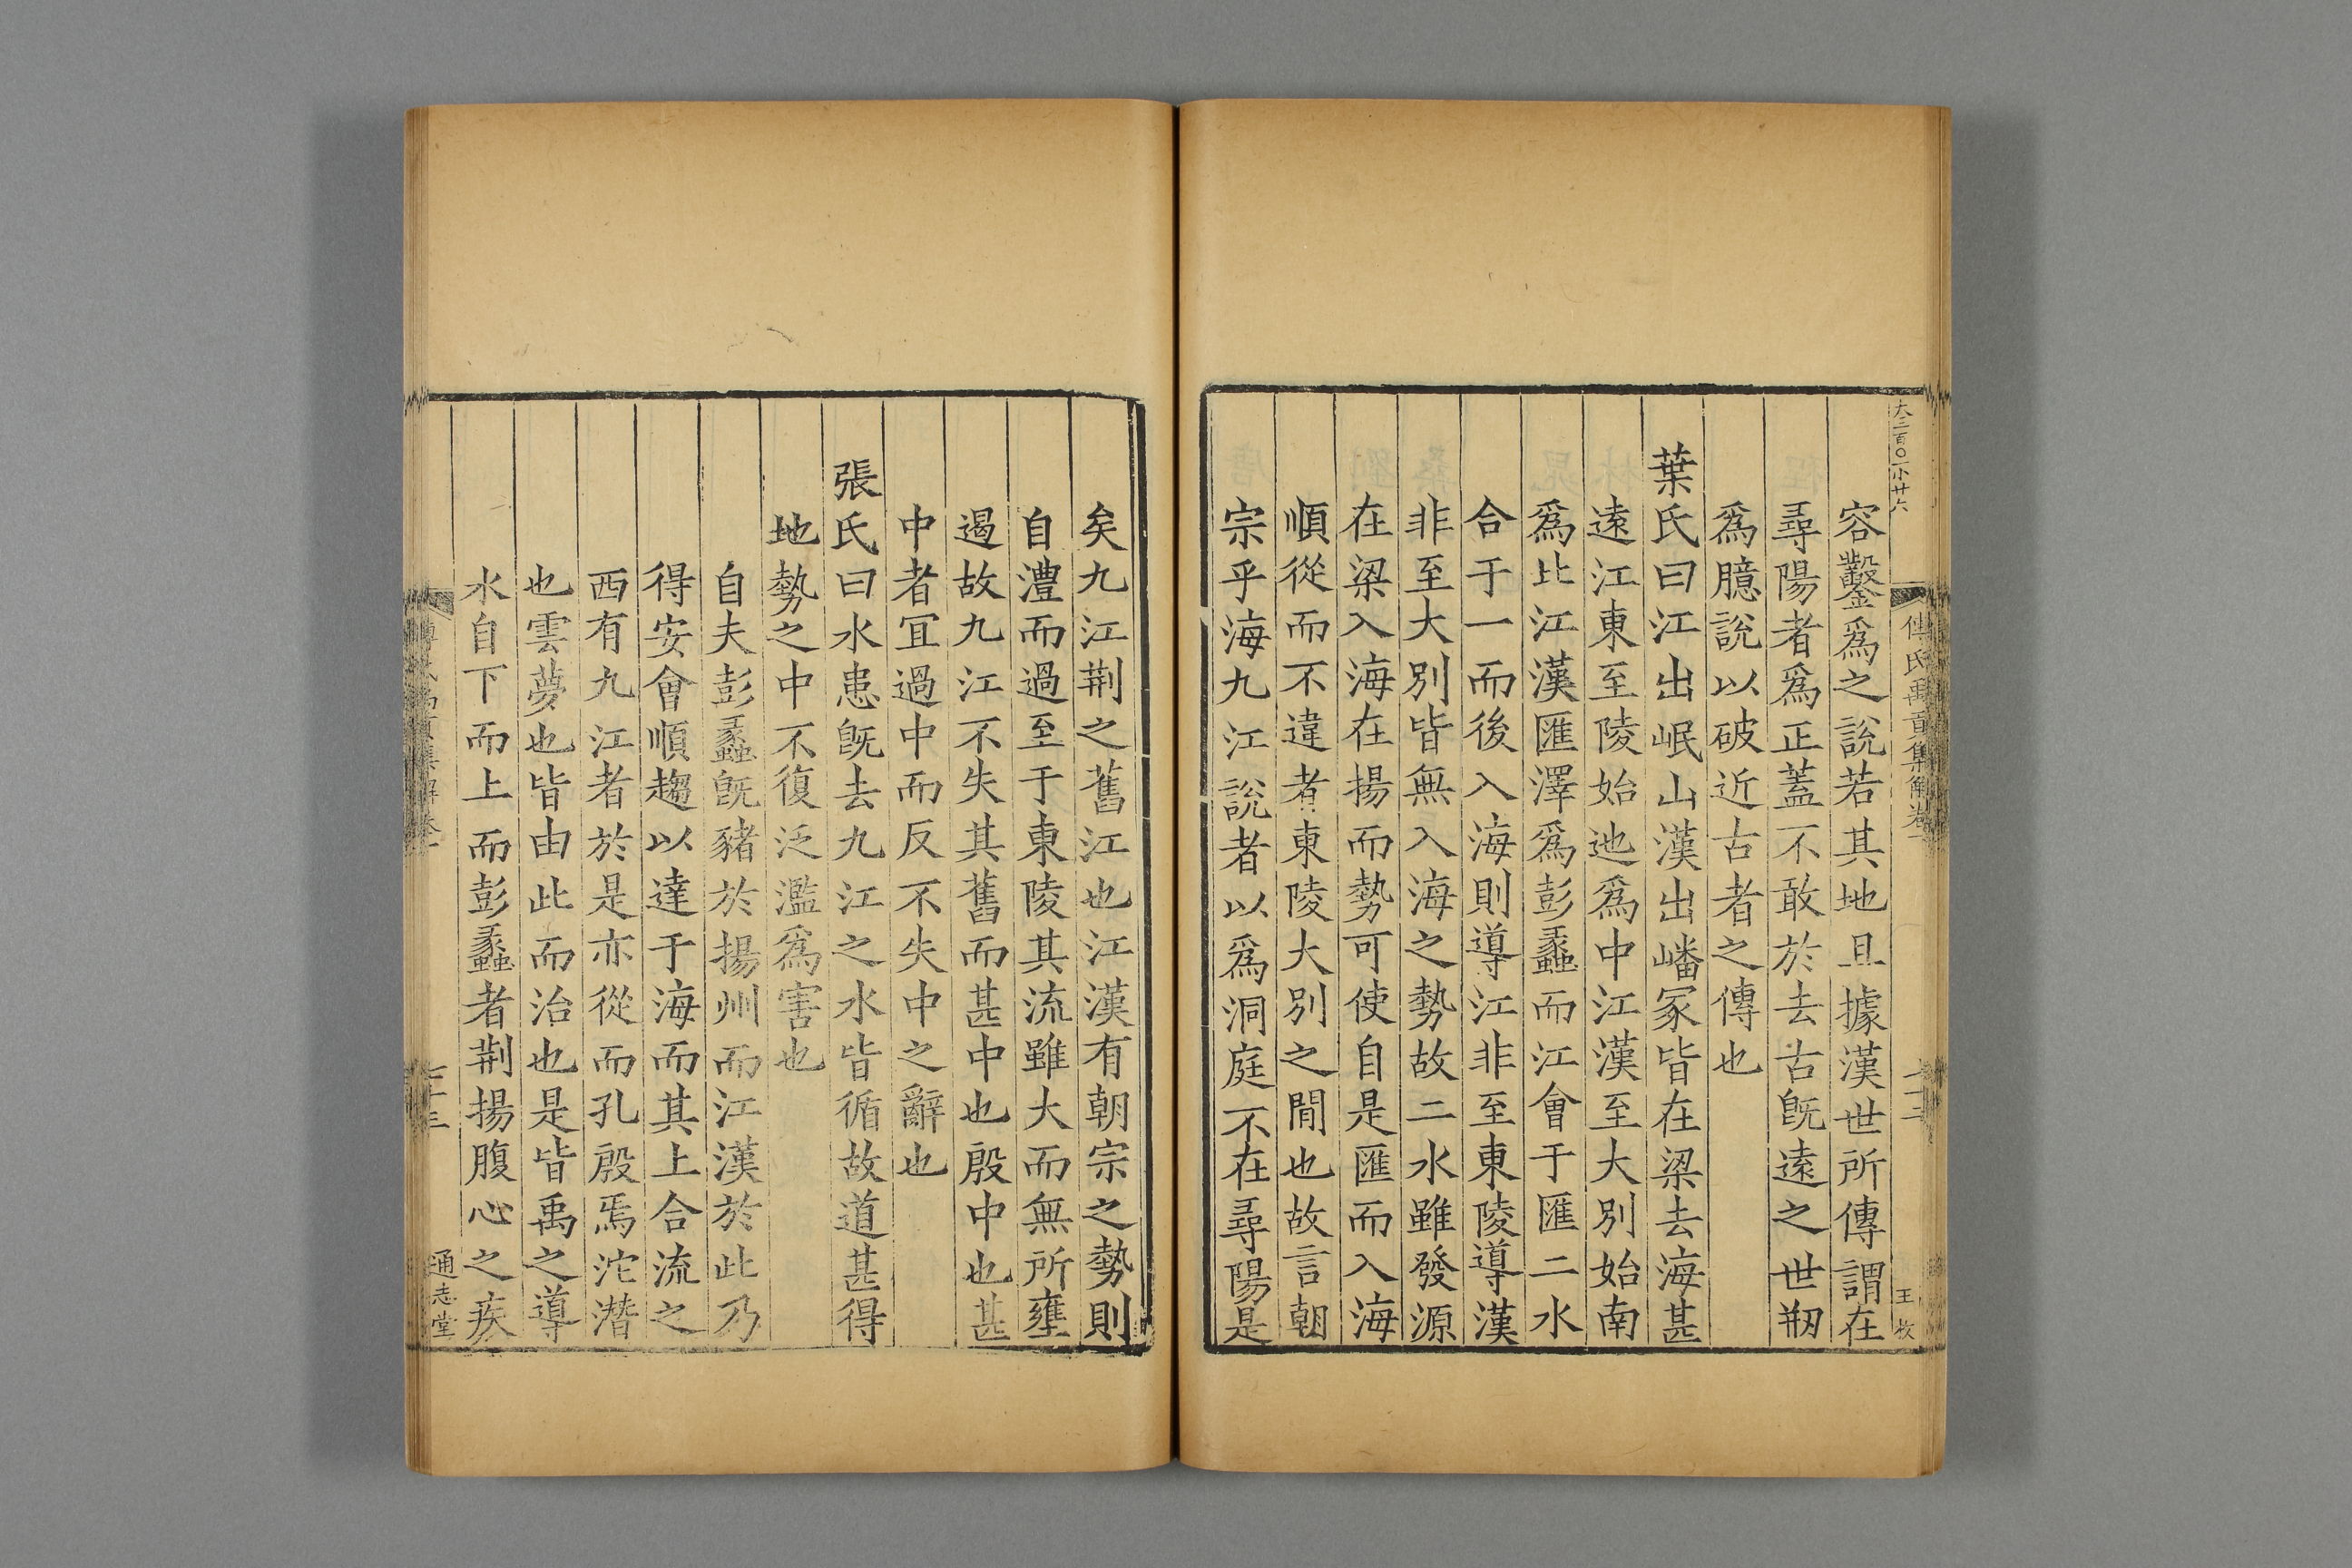 大三百〇一小廿六
傅氏禹貢集解卷一
王 枚
容鑿爲之說若其地且據漢世所傳謂在
尋陽者爲正蓋不敢於去古旣遠之世剏
爲臆說以破近古者之傳也
葉氏曰江出岷山漢出嶓冢皆在梁去海甚
遠江東至陵始迆爲中江漢至大別始南
爲北江漢匯澤爲彭蠡而江會于匯二水
合于一而後入海則導江非至東陵導漢
非至大別皆無入海之勢故二水雖發源
在梁入海在揚而勢可使自是匯而入海
順從而不違者東陵大別之閒也故言朝
宗乎海九江說者以爲洞庭不在尋陽是
矣九江荆之舊江也江漢有朝宗之勢則
自澧而過至于東陵其流雖大而無所壅
遏故九江不失其舊而甚中也殷中也甚
中者冝過中而反不失中之辭也
張氏曰水患旣去九江之水皆循故道甚得
地勢之中不復泛濫爲害也
自夫彭蠡旣豬於揚州而江漢於此乃
得安會順趨以達于海而其上合流之
西有九江者於是亦從而孔殷焉沱潛
也雲夢也皆由此而治也是皆禹之導
水自下而上而彭蠡者荆揚腹心之疾
通志堂